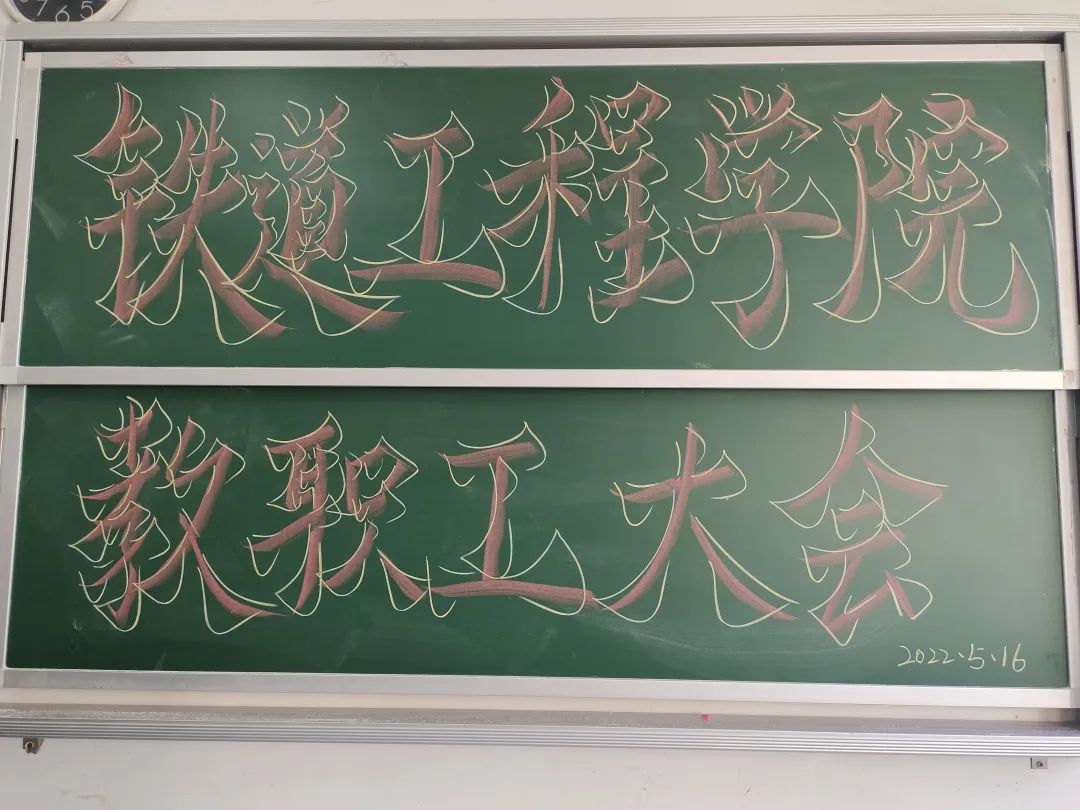 765
铁道工程学院
教职工大会
2022.5.16